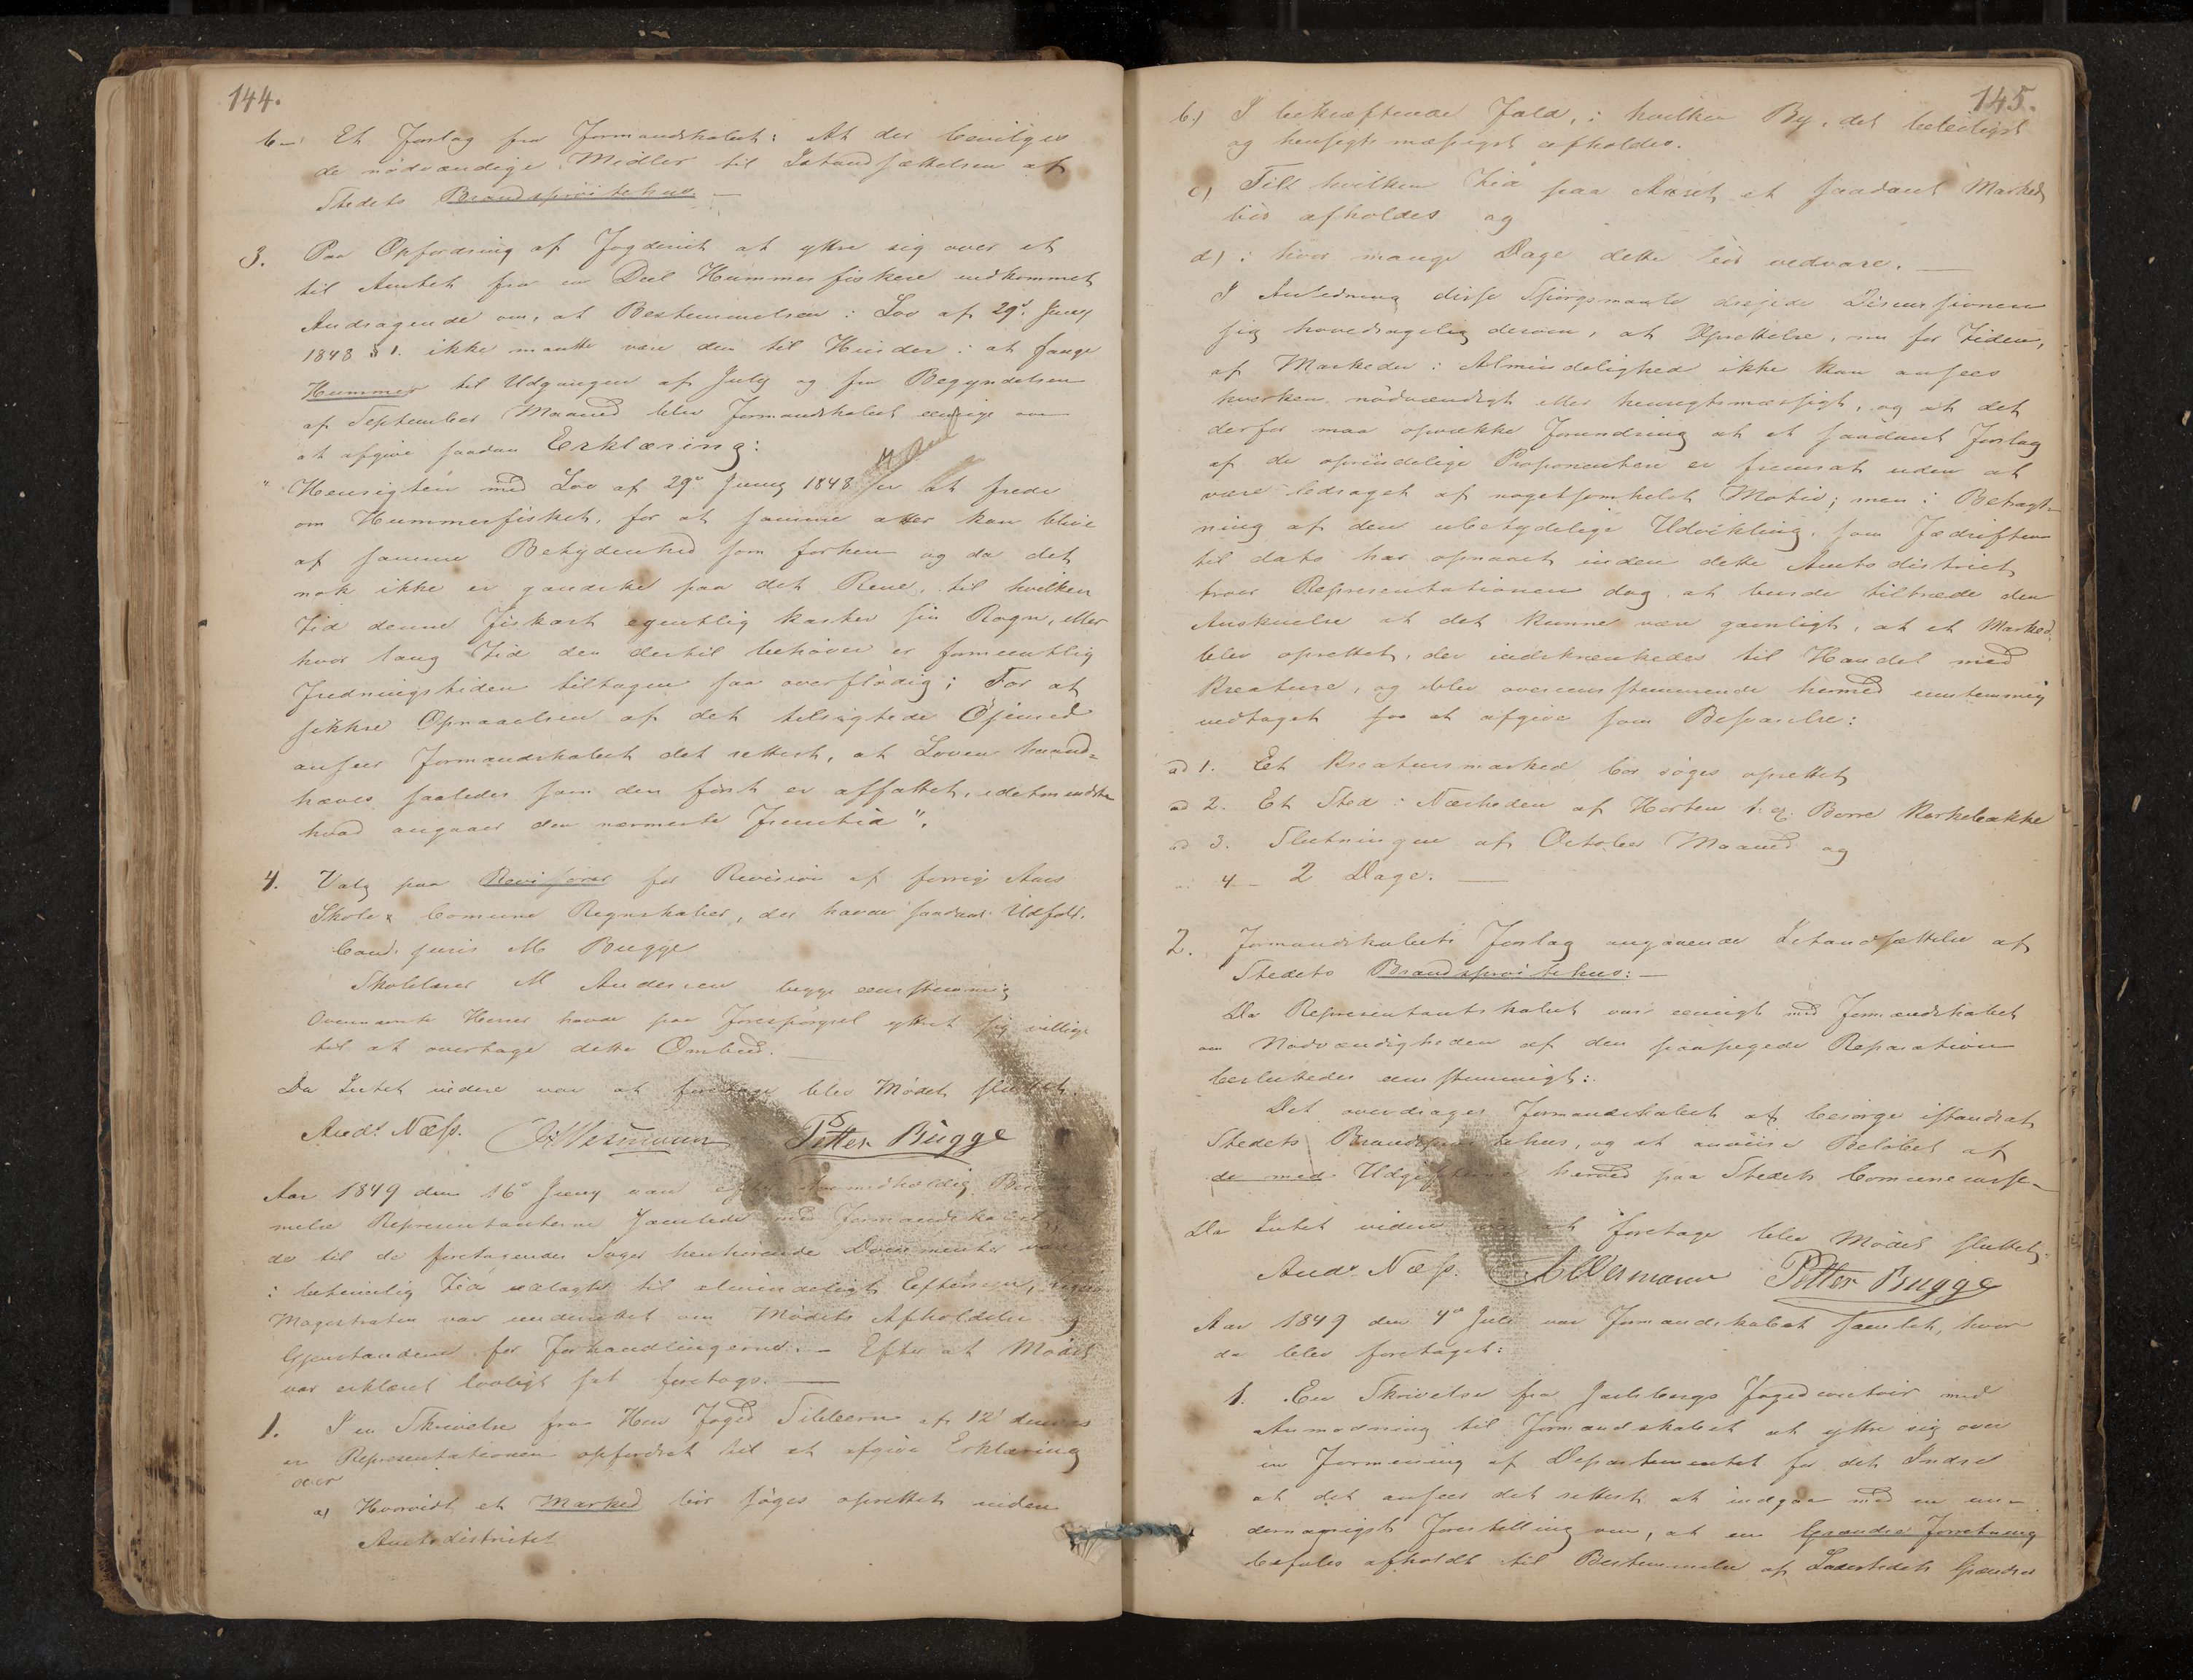 144.
b— Et Forslag fra Formandskabet: At der bevilges
de nödvændige Midler til Istandsættelsen af
Stedets Brandspröitehus. —
3. Paa Opfordring af Fogderiet at yttre sig over et
til Amtet fra en Deel Hummerfiskere indkommet
Andragende om, at Bestemmelsen i Lov af 29d Juny
1848 § 1. ikke maatte være dem til Hinder i at fange
Hummer til Udgangen af July og fra Begyndelsen
af September Maaned blev Formandskabet eenige om
at afgive saadan Erklæring:
" Hensigten med Lov af 29de Juny 1848 er at frede
om Hummerfisket, for at samme atter kan blive
af samme Betydenhed som forhen og da det
nok ikke er gandske paa det Rene, til hvilken
Tid denne Fiskart egentlig kaster sin Rogn, eller
hvor lang Tid den dertil behöver er formentlig
Fredningstiden tiltagen saa overflödig; For at
sikkre Opnaaelsen af det tilsigtede Öjemed
anseer Formandskabet det rettest, at Loven haand=
hæves saaledes som den först er affattet, idetmindste
hvad angaaer den nærmeste Fremtid".
4. Valg paa Revisorer for Revision af forrige Aars
Skole & Comune Regnskaber, der havde saadant Udfald.
Cand. juris M Bugge
Skolelærer M Andersen begge eenstemmig
Ovennævnte Herrer havde paa Forespörgsel yttret sig villige
til at overtage dette Ombud. —
Da Intet videre var at foretage blev Mödet sluttet.
Andr. Næss. Petter Bugge
Aar 1849 den 16de Juny var efter
melse Representanterne samlede med Formandskabet,
de til de foretagendes Sager henhörende Documenter vare
i betimelig Tid udlagte til almindeligt Eftersyn, ligesom
Magistraten var underrettet om Mödets Afholdelse og
Gjenstandene for Forhandlingerne. — Efter at Mödet
var erklæret lovligt sat foretoges. —
1. I en Skrivelse fra Herr Foged af 12' dennes
er Representationen opfordret til at afgive Erklæring
over
a) Hvorvidt et Marked bör söges oprettet inden
Amtsdistrictet
145.
b) I bekræftende Fald, i hvilken By, det beleiligst
og hensigtsmæssigst afholdes.
c) Till hvilken Tid paa Aaret et saadant Marked
bör afholdes og
d) i hvor mange Dage dette bör vedvare. —
I Anledning disse Spörgsmaale drejede Discussionen
sig hovedsagelig derom, at Oprettelse, nu for Tiden,
af Markeder i Almindelighed ikke kan ansees
hverken nödvændigt eller hensigtsmæssigt, og at det
derfor maa opvække Forundring at et saadant Forslag
af de oprindelige Proponenter er fremsat uden at
være ledsaget af nogetsomhelst Motiv; men i Betragt-
ning af den ubetydelige Udvikling, som Fædriften
til dato har opnaaet inden dette Amtsdistrict,
troer Representationen dog, at burde tiltræde den
Anskuelse at det kunne være gavnligt, at et Marked
blev oprettet, der indskrænkedes til Handel med
Kreature, og blev overeensstemmende hermed eenstemmig
vedtaget for at afgive som Besvarelse:
ad 1. Et Kreatursmarked bör söges oprettet
ad 2. Et Sted i Nærheden af Horten f. Ex. Borre Kirkebakke
ad 3. Slutningen af October Maaned og
4 — 2 Dage. —
2. Formandskabets Forslag angaaende Istandsættelse af
Stedets Brandspröitehus: —
Da Representantskabet var eenigt med Formandskabet
om Nödvændigheden af den paapegede Reparation
besluttedes eenstemmigt:
Det overdrages Formandskabet at besörge istandsat
Stedets Brandspröitehus, og at anvise Belöbet af
de med Udgifterne herved paa Stedets Comunecasse —
Da Intet videre var at foretage blev Mödet sluttet.
Andr. Næss. Petter Bugge
Aar 1849 den 4de Juli var Formandskabet samlet, hvor
da blev foretaget:
1. En Skrivelse fra Jarlsbergs Fogedcontoir med
Anmodning til Formandskabet at yttre sig over
en Formening af Departementet for det Indre
at det ansees det rettest at indgaa med en un-
derdanigst Forestilling om, at en Grændse Forretning
befales afholdt til Bestemmelse af Ladestedets Grændser